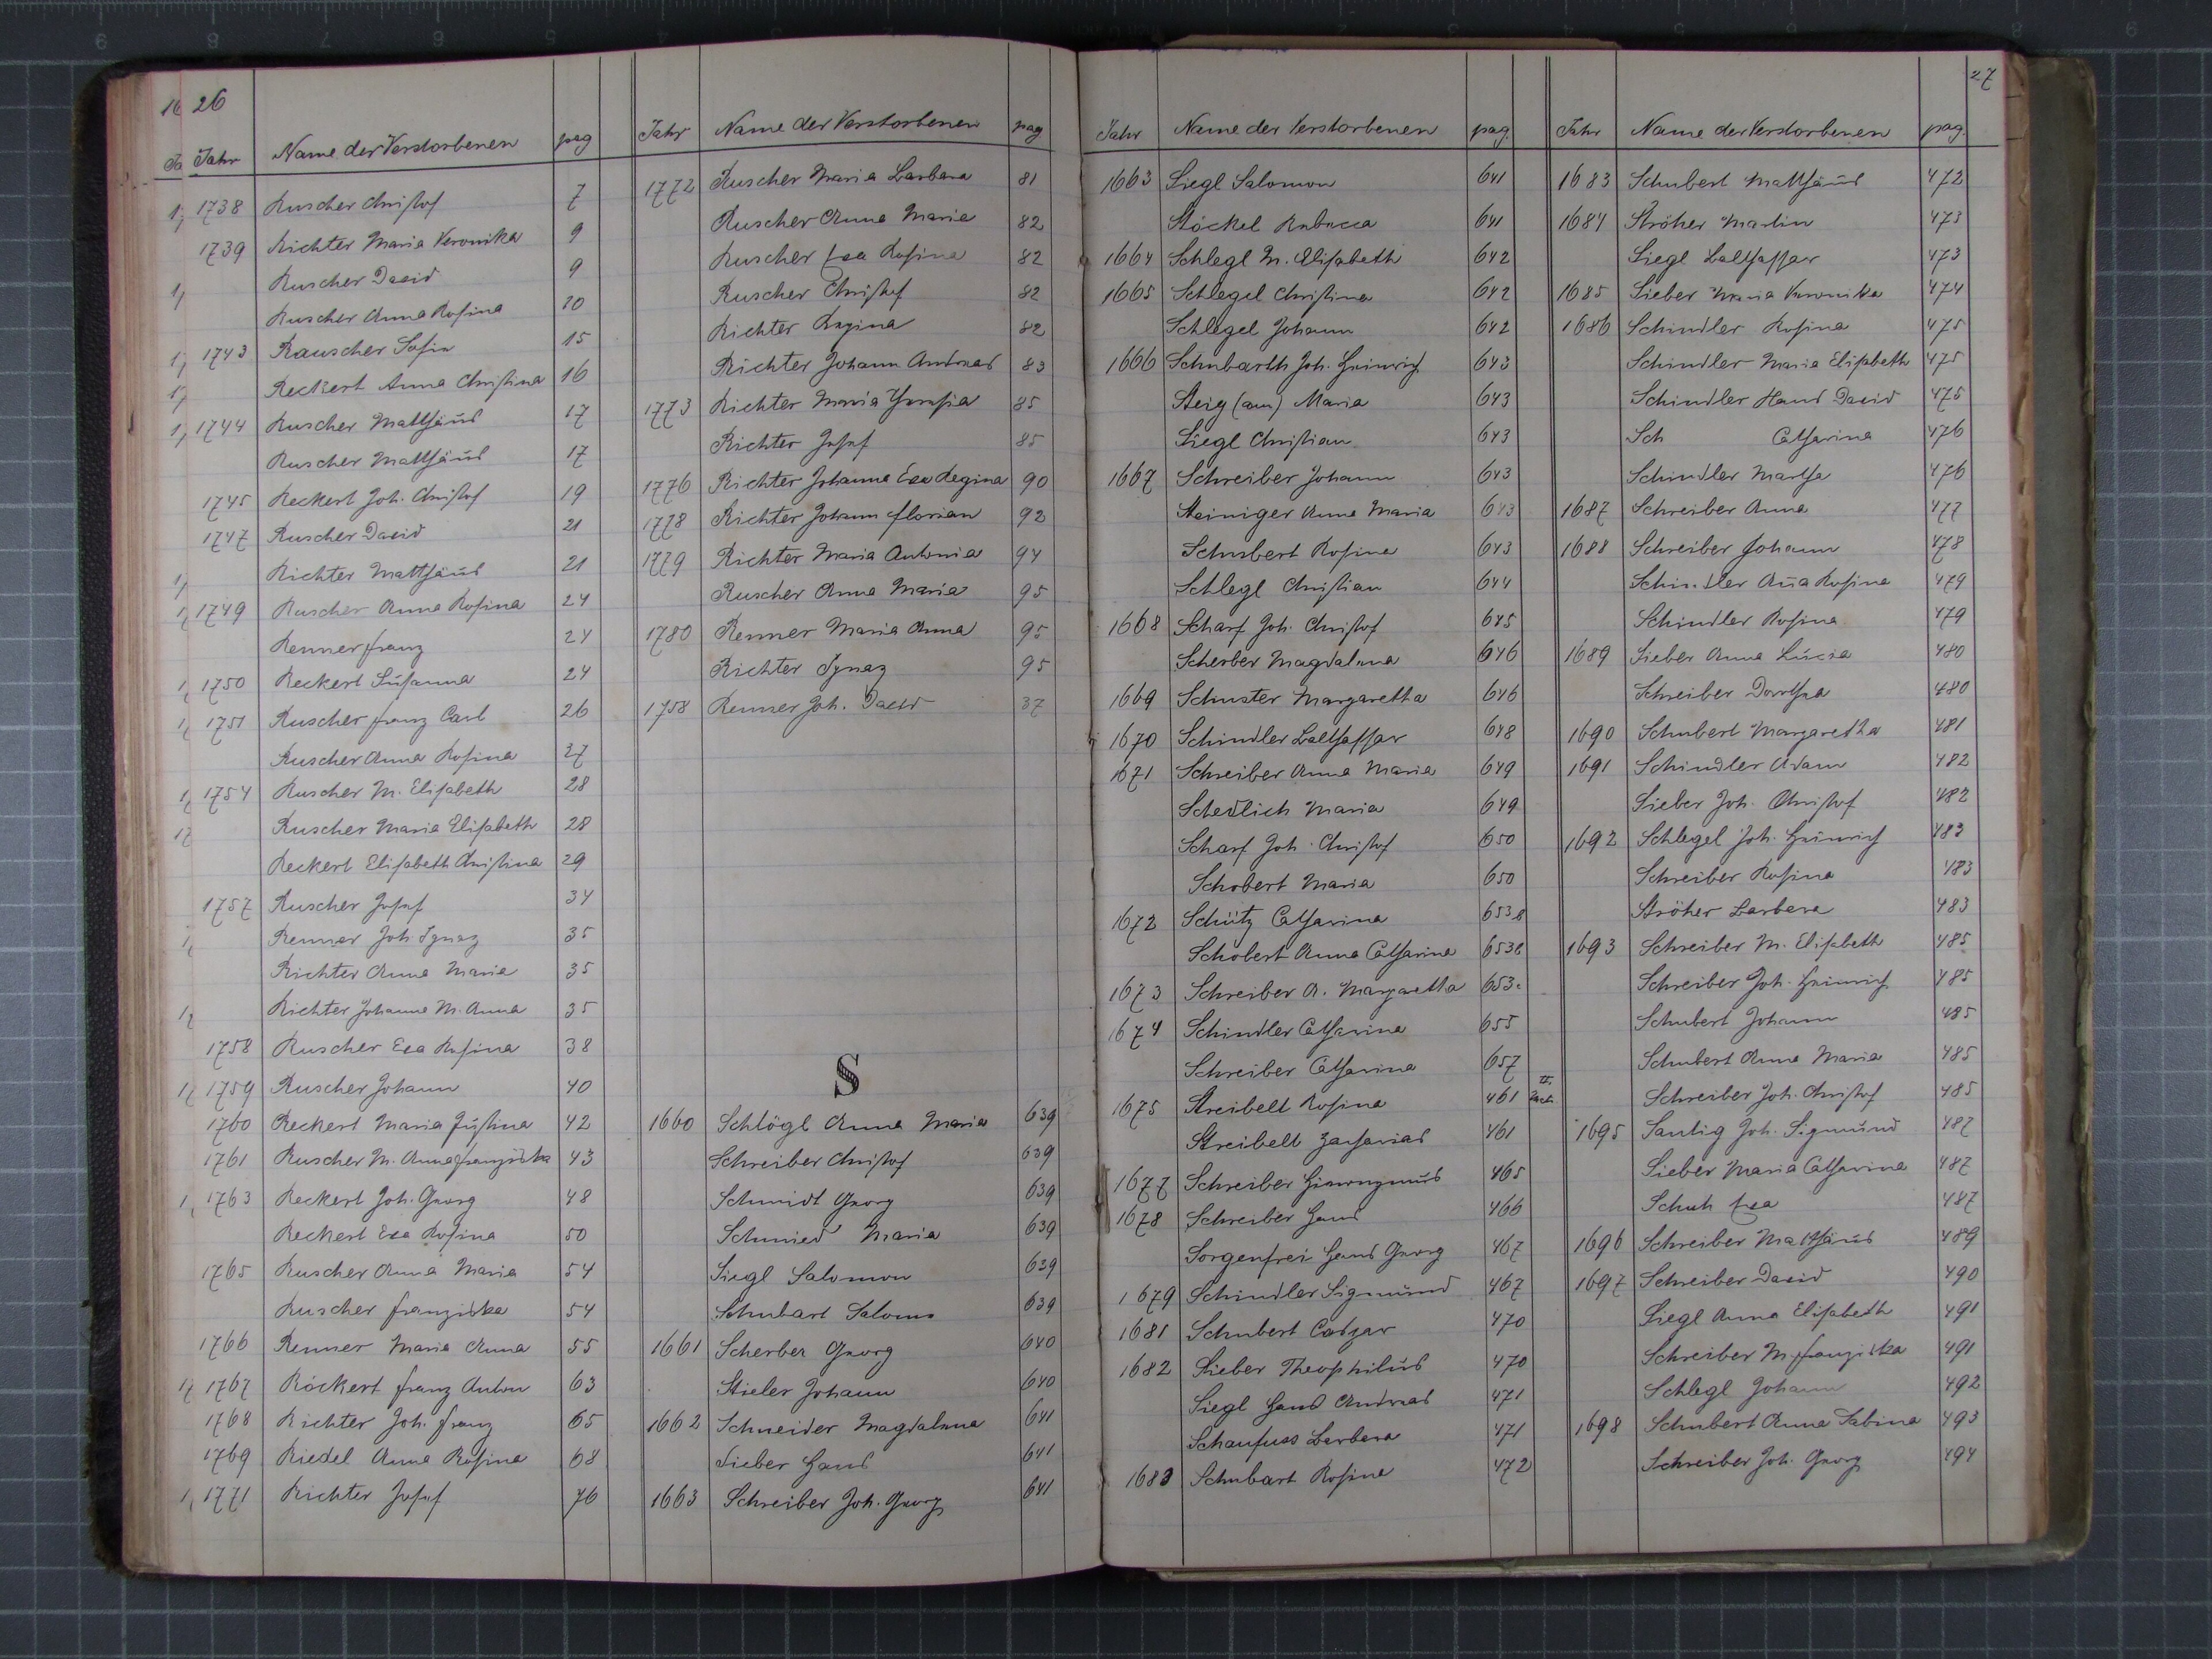 26
Jahr Name der Verstorbenen pag
1738 Ruscher Christof 7
1739 Richter Maria Veronika 9
Ruscher David 9
Ruscher Anna Rosina 10
1743 Rauscher Sofia 15
Reckert Anna Christina 16
1744 Ruscher Matthäus 17
Ruscher Matthäus 17
1745 Reckert Joh. Christof 19
1747 Ruscher David 21
Richter Matthäus 21
1749 Ruscher Anna Rosina 24
Renner Franz 24
1750 Reckert Susanna 24
1751 Ruscher Franz Carl 26
Ruscher Anna Rosina 27
1754 Ruscher M. Elisabeth 28
Ruscher Maria Elisabeth 28
Reckert Elisabeth Christina 29
1757 Ruscher Josef 34
Renner Joh. Ignaz 35
Richter Anna Maria 35
Richter Johanna M. Anna 35
1758 Ruscher Eva Rosina 38
1759 Ruscher Johann 40
1760 Reckert Maria Justina 42
1761 Ruscher M. Anna Franziska 43
1763 Reckert Joh. Georg 48
Reckert Eva Rosina 50
1765 Ruscher Anna Maria 54
Ruscher Franziska 54
1766 Renner Maria Anna 55
1767 Röckert Franz Anton 63
1768 Richter Joh. Franz 65
1769 Riedel Anna Rosina 68
1771 Richter Josef 76
Jahr Name der Verstorbenen pag
1772 Ruscher Maria Barbara 81
Ruscher Anna Maria 82
Ruscher Eva Rosina 82
Ruscher Christof 82
Richter Regina 82
Richter Johann Andreas 83
1773 Richter Maria 85
Richter Josef 85
1776 Richter Johanna Eva Regina 90
1778 Richter Johann Florian 92
1779 Richter Maria Antonia 94
Ruscher Anna Maria 95
1780 Renner Maria Anna 95
Richter Ignaz 95
1758 Renner Joh. David 37
S
1660 Schlögl Anna Maria 639
Schreiber Christof 639
Schmidt Georg 639
Schmied Maria 639
Siegl Salomon 639
Schubart Salome 639
1661 Scherber Georg 640
Stieler Johann 640
1662 Schneider Magdalena 641
Sieber Hans 641
1663 Schreiber Joh. Georg 641
Jahr Name der Verstorbenen pag.
1663 Siegl Salomon 641
Stöckel Rebecca 641
1664 Schlegl M. Elisabeth 642
1665 Schlegel Christina 642
Schlegel Johann 642
1666 Schubarth Joh. Heinrich 643
Steig (am) Maria 643
Siegl Christian 643
1667 Schreiber Johann 643
Steiniger Anna Maria 643
Schubert Rosina 643
Schlegl Christian 644
1668 Scharf Joh. Christof 645
Scherber Magdalena 646
1669 Schuster Margaretha 646
1670 Schindler Balthassar 648
1671 Schreiber Anna Maria 649
Schedlich Maria 649
Scharf Joh. Christof 650
Schobert Maria 650
1672 Schütz Catharina 653b
Schobert Anna Catharina 653b
1673 Schreiber A. Margaretha 653c
1674 Schindler Catharina 655
Schreiber Catharina 657
1675 Streibelt Rosina 461 II.
Streibelt Zacharias 461
1677 Schreiber Hieronymus 465
1678 Schreiber Hans 466
Sorgenfrei Hans Georg 467
1679 Schindler Sigmund 467
1681 Schubert Caspar 470
1682 Sieber Theophilus 470
Siegl Hans Andreas 471
Schaufuss Barbara 471
1683 Schubart Rosina 472
27
Jahr Name der Verstorbenen pag.
1683 Schubert Matthäus 472
1684 Ströher Martin 473
Siegl Balthassar 473
1685 Sieber Maria Veronika 474
1686 Schindler Rosina 475
Schindler Maria Elisabeth 475
Schindler Hans David 475
Sch Catharina 476
Schindler Martha 476
1687 Schreiber Anna 477
1688 Schreiber Johann 478
Schindler Aña Rosina 479
Schindler Rosina 479
1689 Sieber Anna Lucia 480
Schreiber Dorothea 480
1690 Schubert Margaretha 481
1691 Schindler Adam 482
Sieber Joh. Christof 482
1692 Schlegel Joh. Heinrich 483
Schreiber Rosina 483
Ströher Barbara 483
1693 Schreiber M. Elisabeth 485
Schreiber Joh. Heinrich 485
Schubert Johann 485
Schubert Anna Maria 485
Schreiber Joh. Christof 485
1695 Santig Joh. Sigmund 487
Sieber Maria Catharina 487
Schuh Eva 487
1696 Schreiber Matthäus 489
1697 Schreiber David 490
Siegl Anna Elisabeth 491
Schreiber M. Franziska 491
Schlegl Johann 492
1698 Schubert Anna Sabina 493
Schreiber Joh. Georg 494